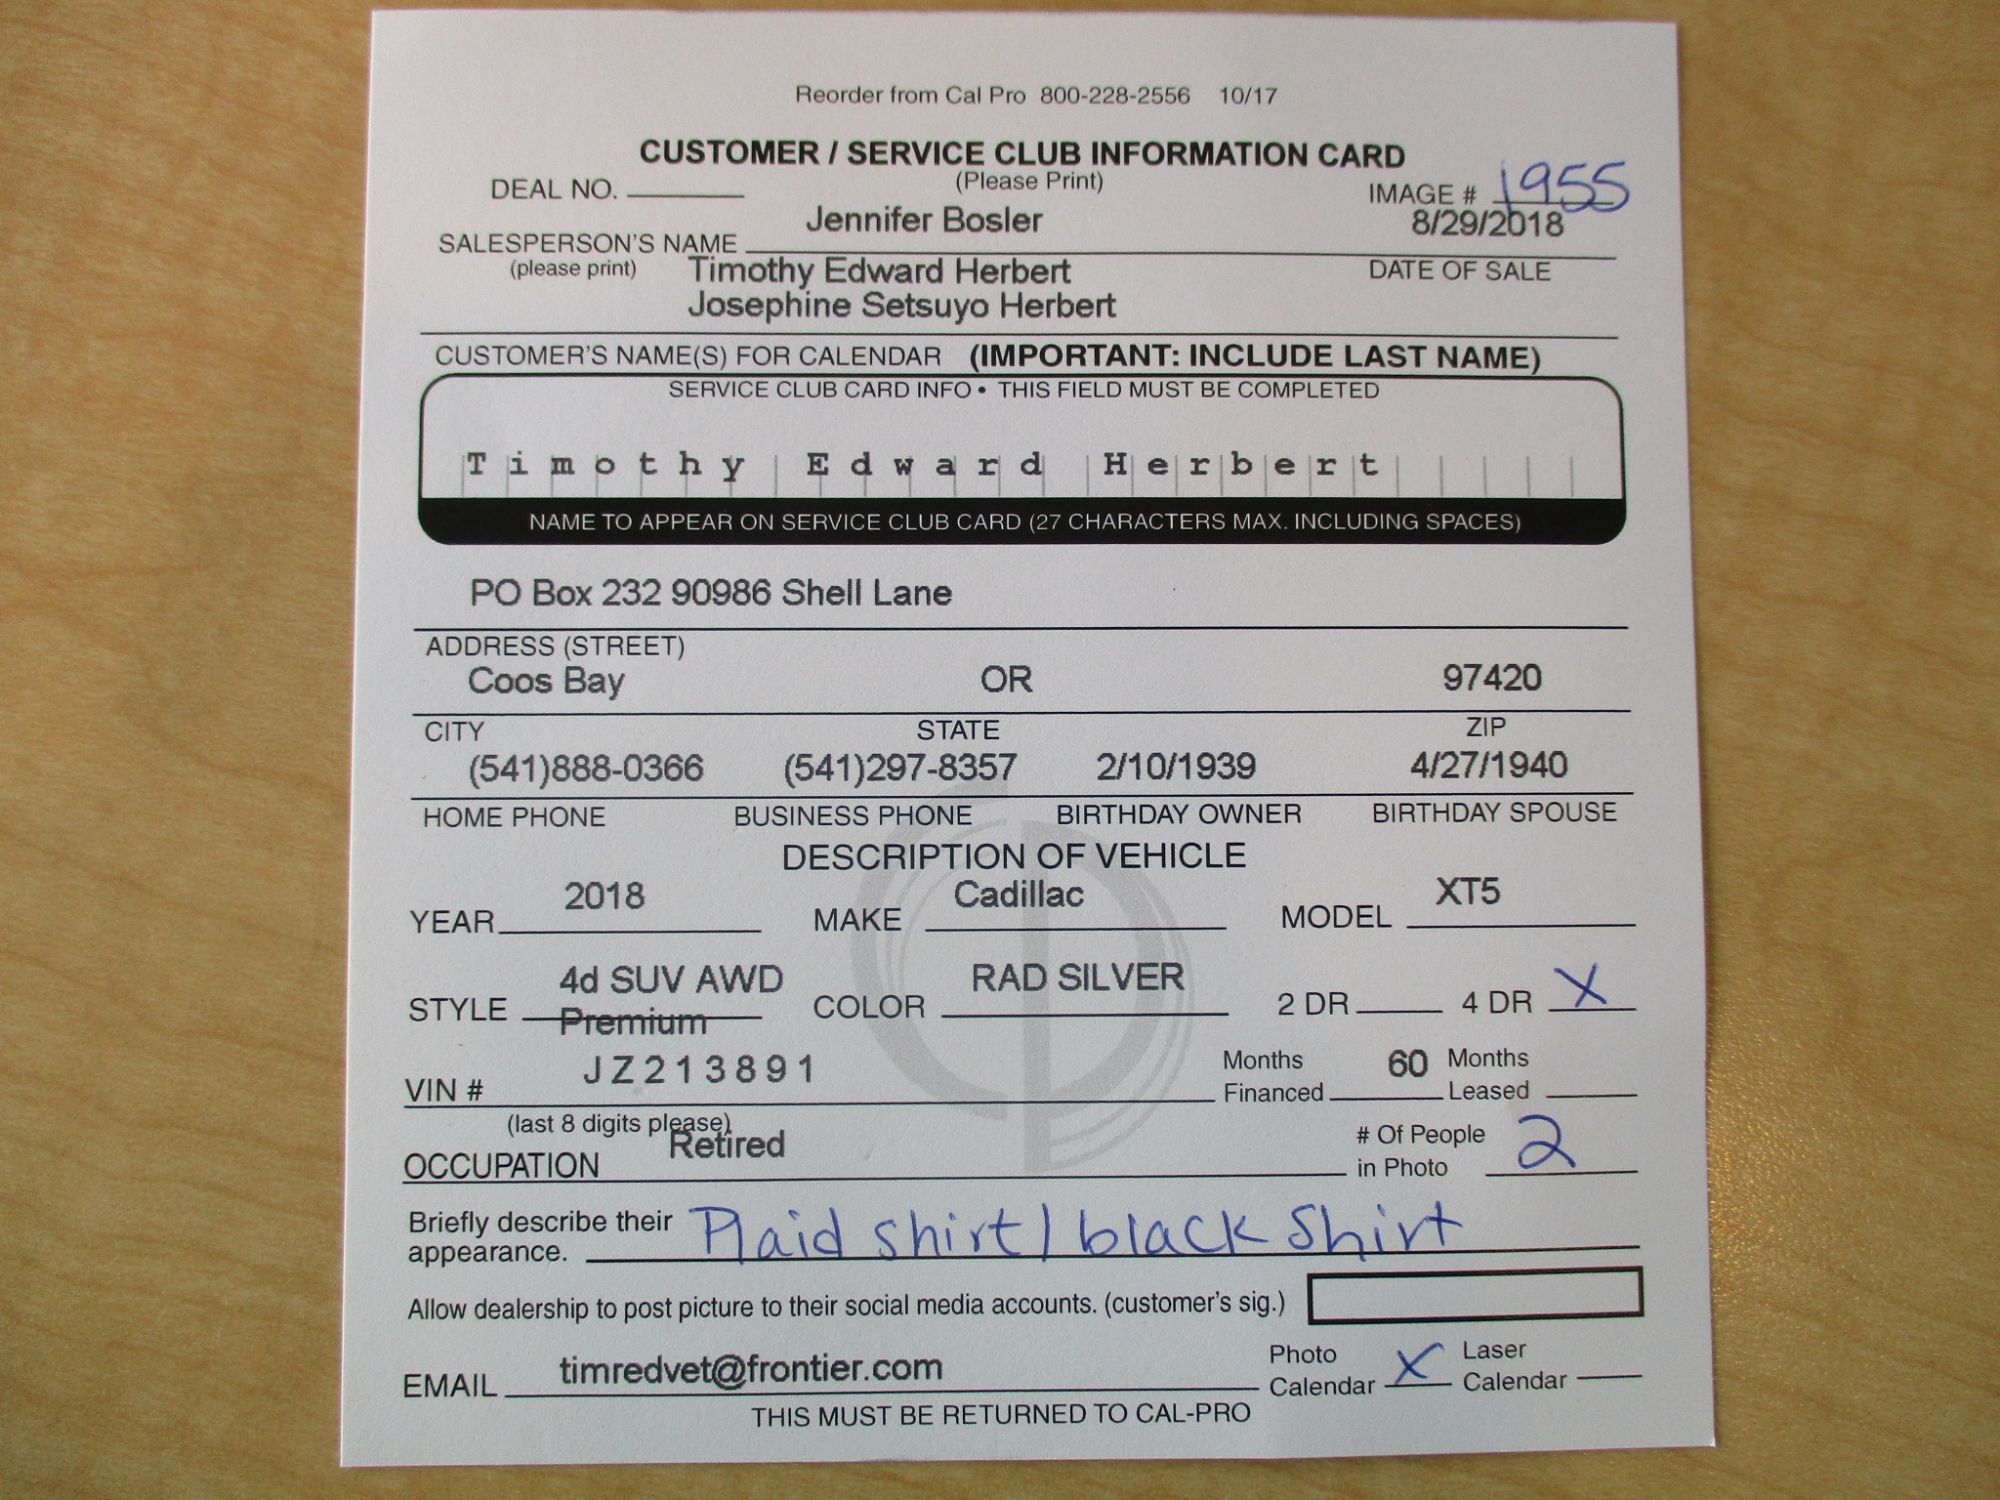 Reorder from Cal Pro 800-228-2556 10/17
CUSTOMER / SERVICE CLUB INFORMATION CARD
(Please Print)
DEAL NO. IMAGE # 1955
Jennifer Bosler 8/29/2018
SALESPERSON'S NAME
(please print) DATE OF SALE
Timothy Edward Herbert
Josephine Setsuyo Herbert
CUSTOMER'S NAME(S) FOR CALENDAR (IMPORTANT: INCLUDE LAST NAME)
SERVICE CLUB CARD INFO • THIS FIELD MUST BE COMPLETED
Timothy Edward Herbert
NAME TO APPEAR ON SERVICE CLUB CARD (27 CHARACTERS MAX. INCLUDING SPACES)
PO Box 232 90986 Shell Lane
ADDRESS (STREET)
Coos Bay OR 97420
CITY STATE ZIP
(541)888-0366 (541)297-8357 2/10/1939 4/27/1940
HOME PHONE BUSINESS PHONE BIRTHDAY OWNER BIRTHDAY SPOUSE
DESCRIPTION OF VEHICLE
YEAR 2018 MAKE Cadillac MODEL XT5
STYLE 4d SUV AWD Premium COLOR RAD SILVER 2 DR 4 DR X
VIN # JZ213891 Months Financed 60 Months Leased
(last 8 digits please)
OCCUPATION Retired # Of People in Photo 2
Briefly describe their appearance. Plaid shirt / black shirt
Allow dealership to post picture to their social media accounts. (customer's sig.)
EMAIL timredvet@frontier.com Photo Calendar X Laser Calendar
THIS MUST BE RETURNED TO CAL-PRO